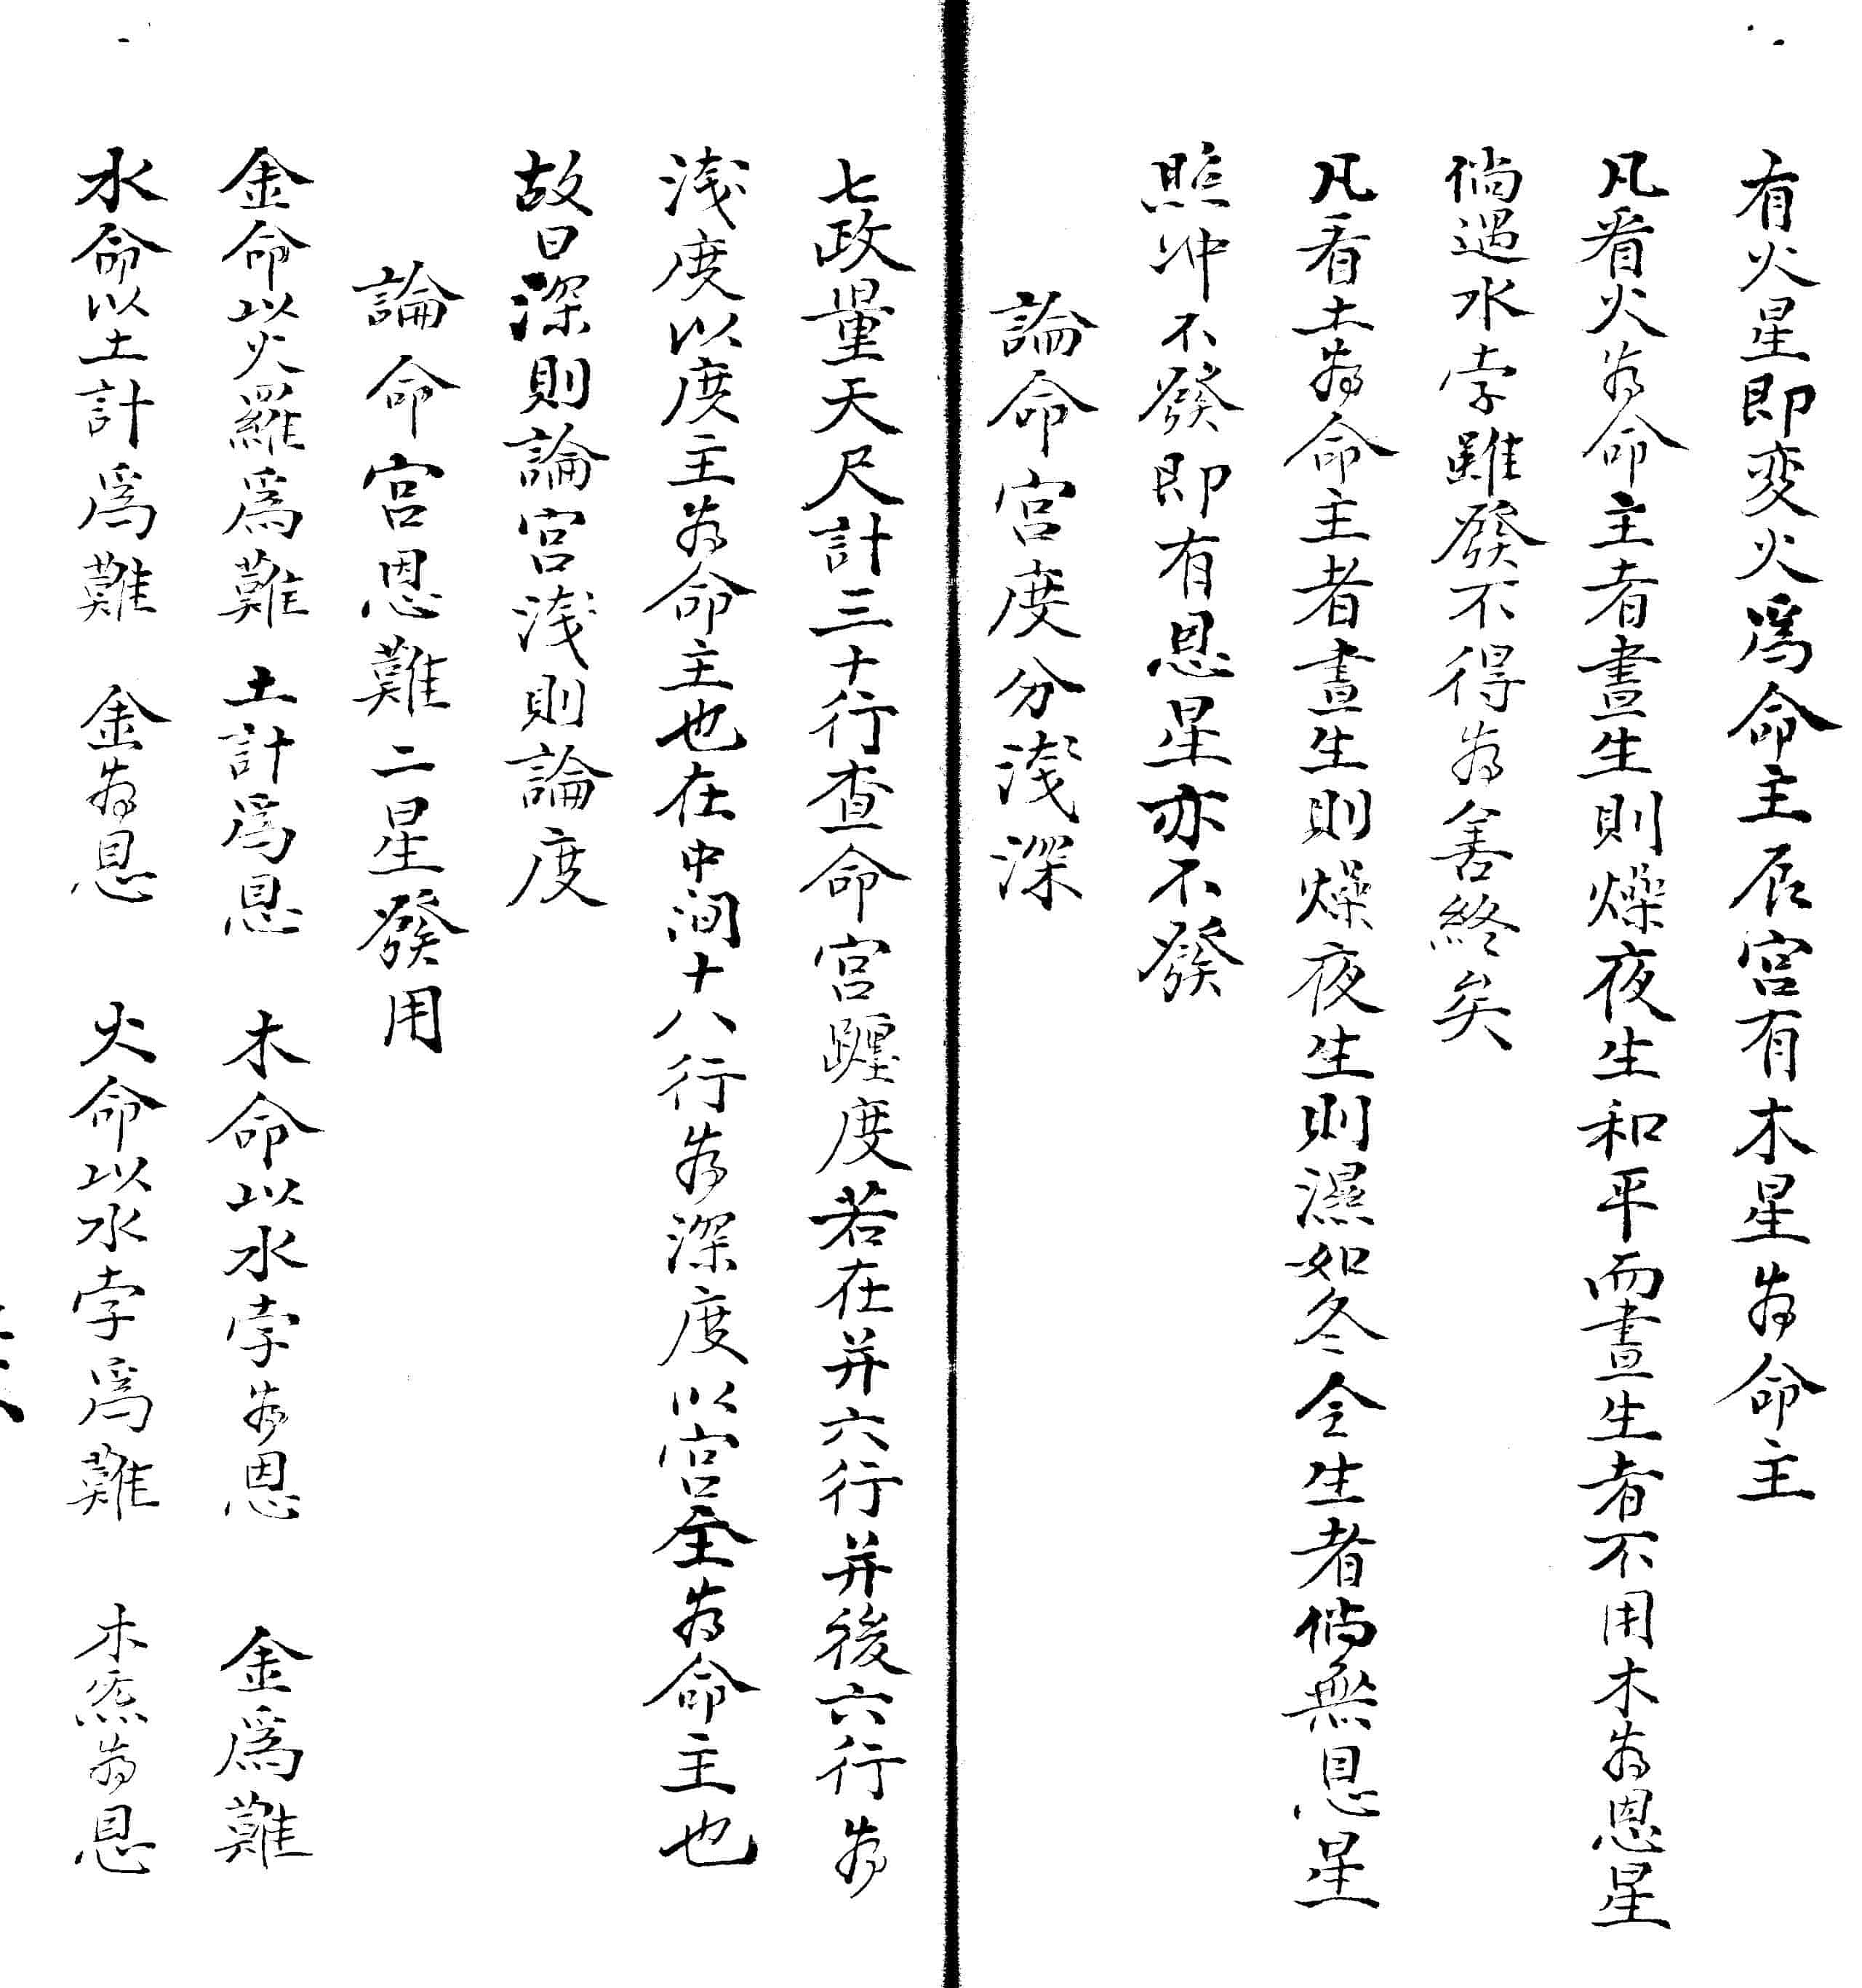 有火星即変火爲命主辰宮有木星為命主
凡看火為命主者晝生則燥夜生和平而晝生者不用木為恩星
倘遇水孛雖發不得為善終矣
凡看土為命主者晝生則燥夜生則濕如冬令生者倘無恩星
照冲不發即有恩星亦不發
論命宮度分淺深
七政量天尺計三十行查命宮躔度若在并六行并後六行為
淺度以度主為命主也在中间十八行為深度以宮全為命主也
故曰深則論宮淺則論度
論命宮恩難二星發用
金命以火羅爲難 土計爲恩 木命以水孛為恩 金爲難
水命以土計爲難 金為恩 火命以水孛爲難 木炁為恩